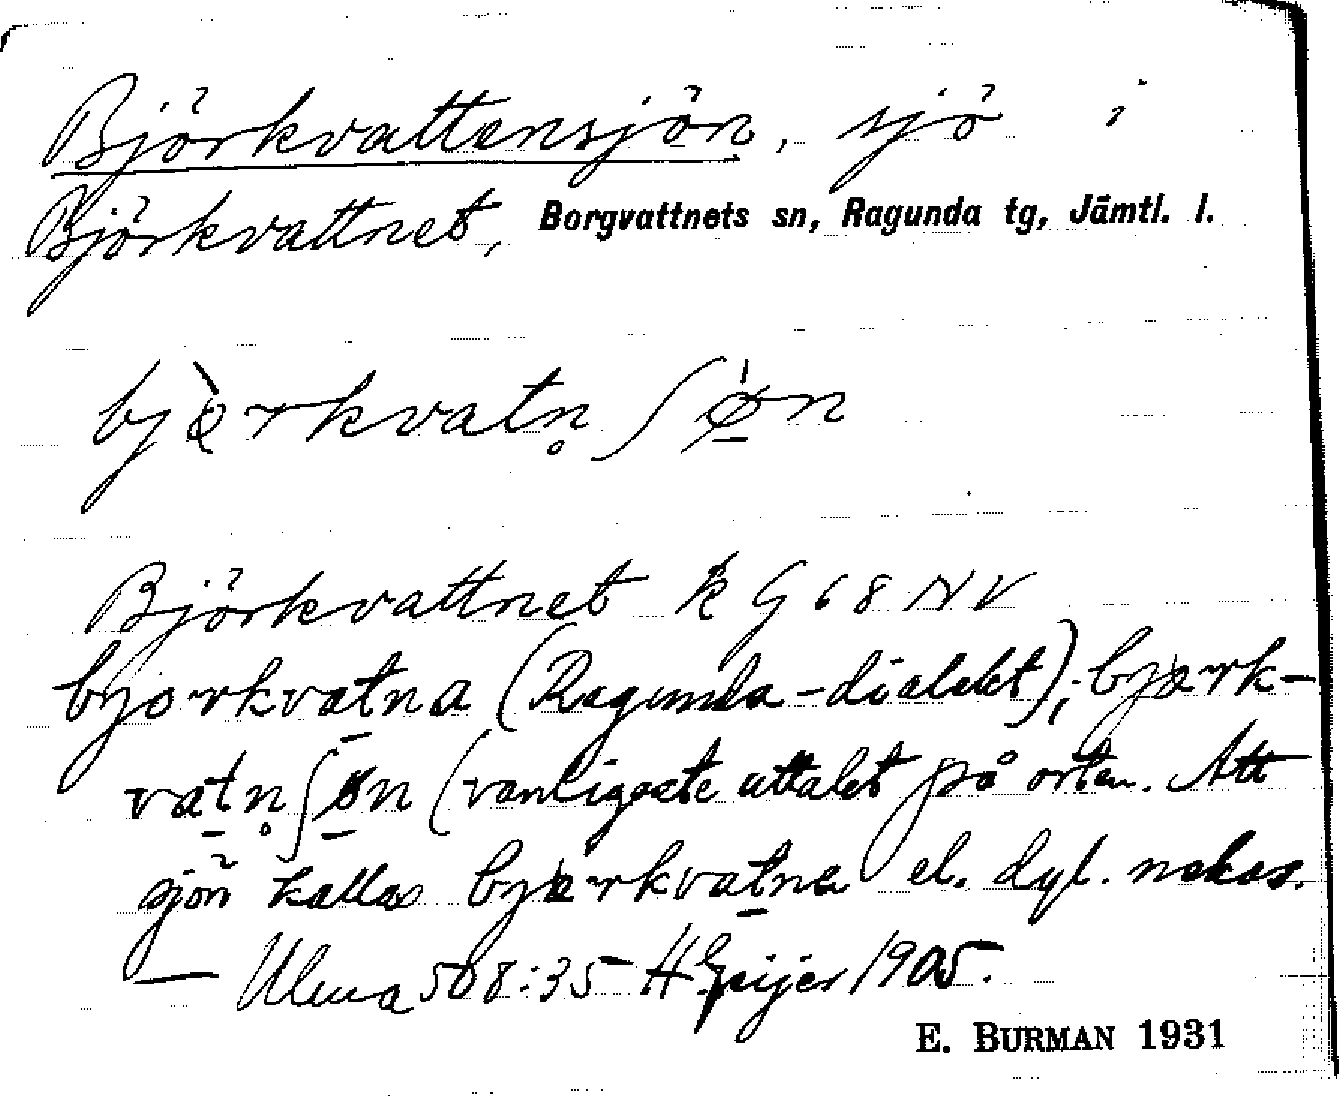 Björkvattensjön, sjö i
Björkvattnet, Borgvattnets sn, Ragunda tg, Jämtl. l.
bjørkvatn̥ ʃøn
Björkvattnet k G 68 NV
bjorkvatna (Ragunda-dialekt); bjørk-
vatn̥ʃøn (vanligaste uttalet på orten. Att
sjön kallas bjørkvatna el. dyl. nekas.
— Ulma 508:35 H Geijer 1905.
E. BURMAN 1931